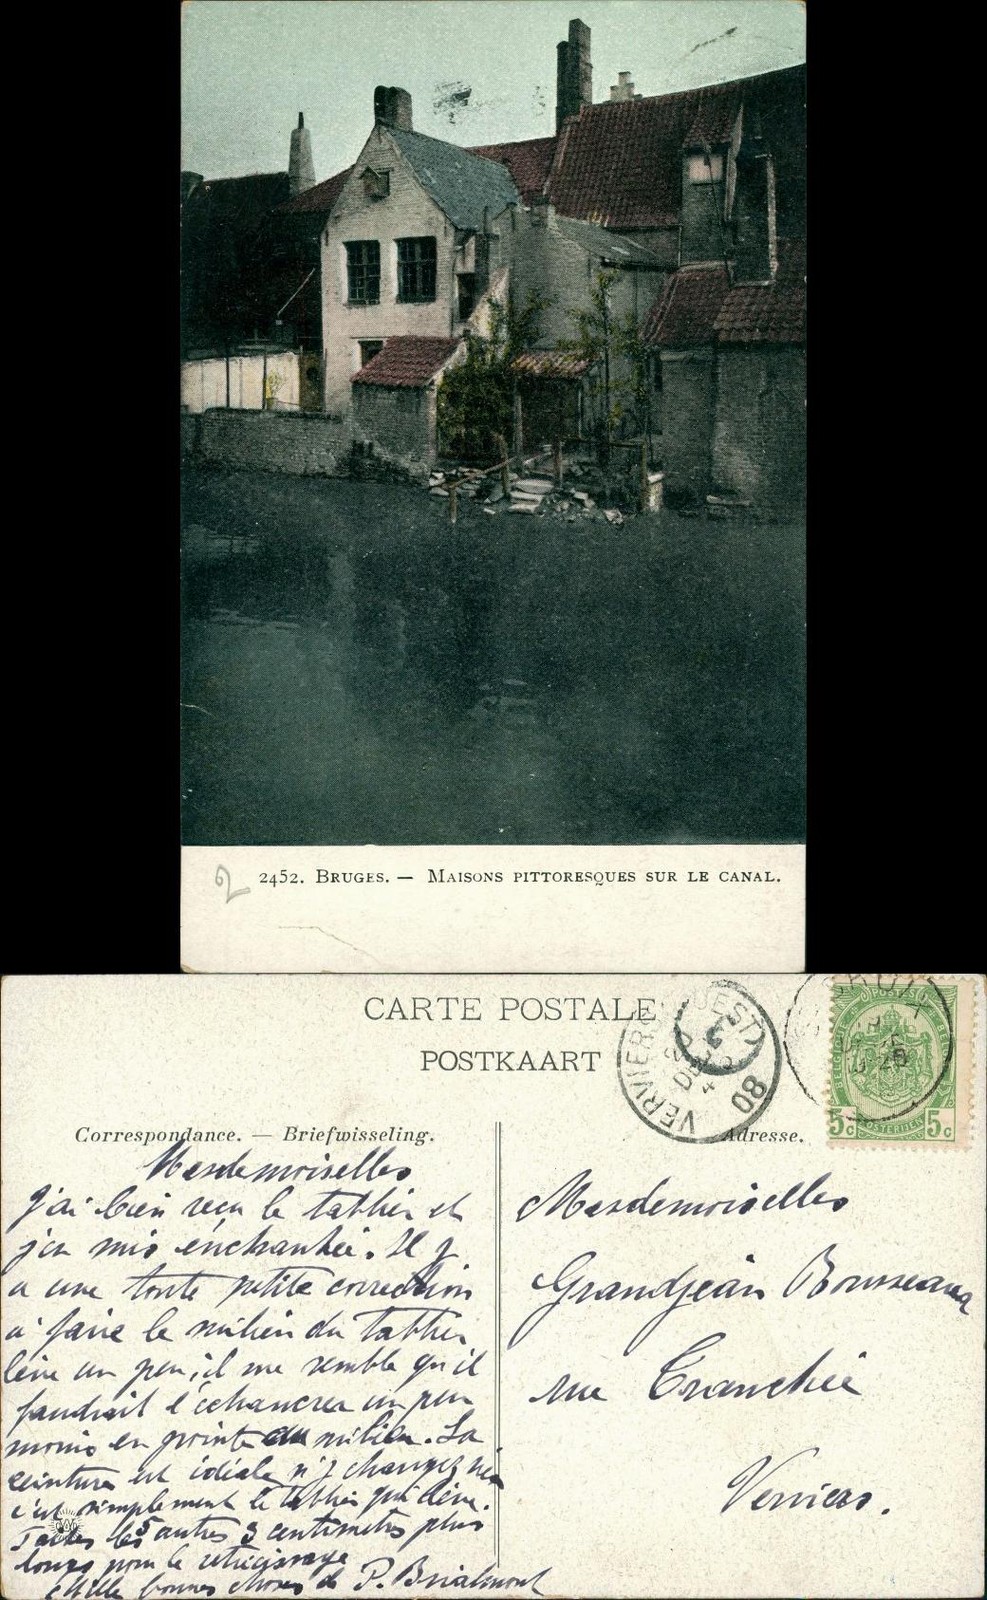 2
2452. Bruges. — Maisons pittoresques sur le canal.
CARTE POSTALE
POSTKAART
VERVIERS (OUEST)
08
POSTES
BELGIQUE BELGIE
POSTERIJEN
5c 5c
Correspondance. — Briefwisseling.
Adresse.
Mesdemoiselles
j'ai bien reçu le tablier et
j'en suis enchantée. Il y
a une toute petite correction
à faire le milieu du tablier
lève un peu, il me semble qu'il
faudrait l'échancrer un peu
moins en pointe au milieu. La
ceinture est idéale n'y changez rien
c'est simplement le tablier qui lève.
Faites les 5 autres 3 centimètres plus
longs pour le rétrécissage
Mille bonnes choses de P. Brialmont
Mesdemoiselles
Grandjean Rousseaux
rue Tranchée
Verviers.